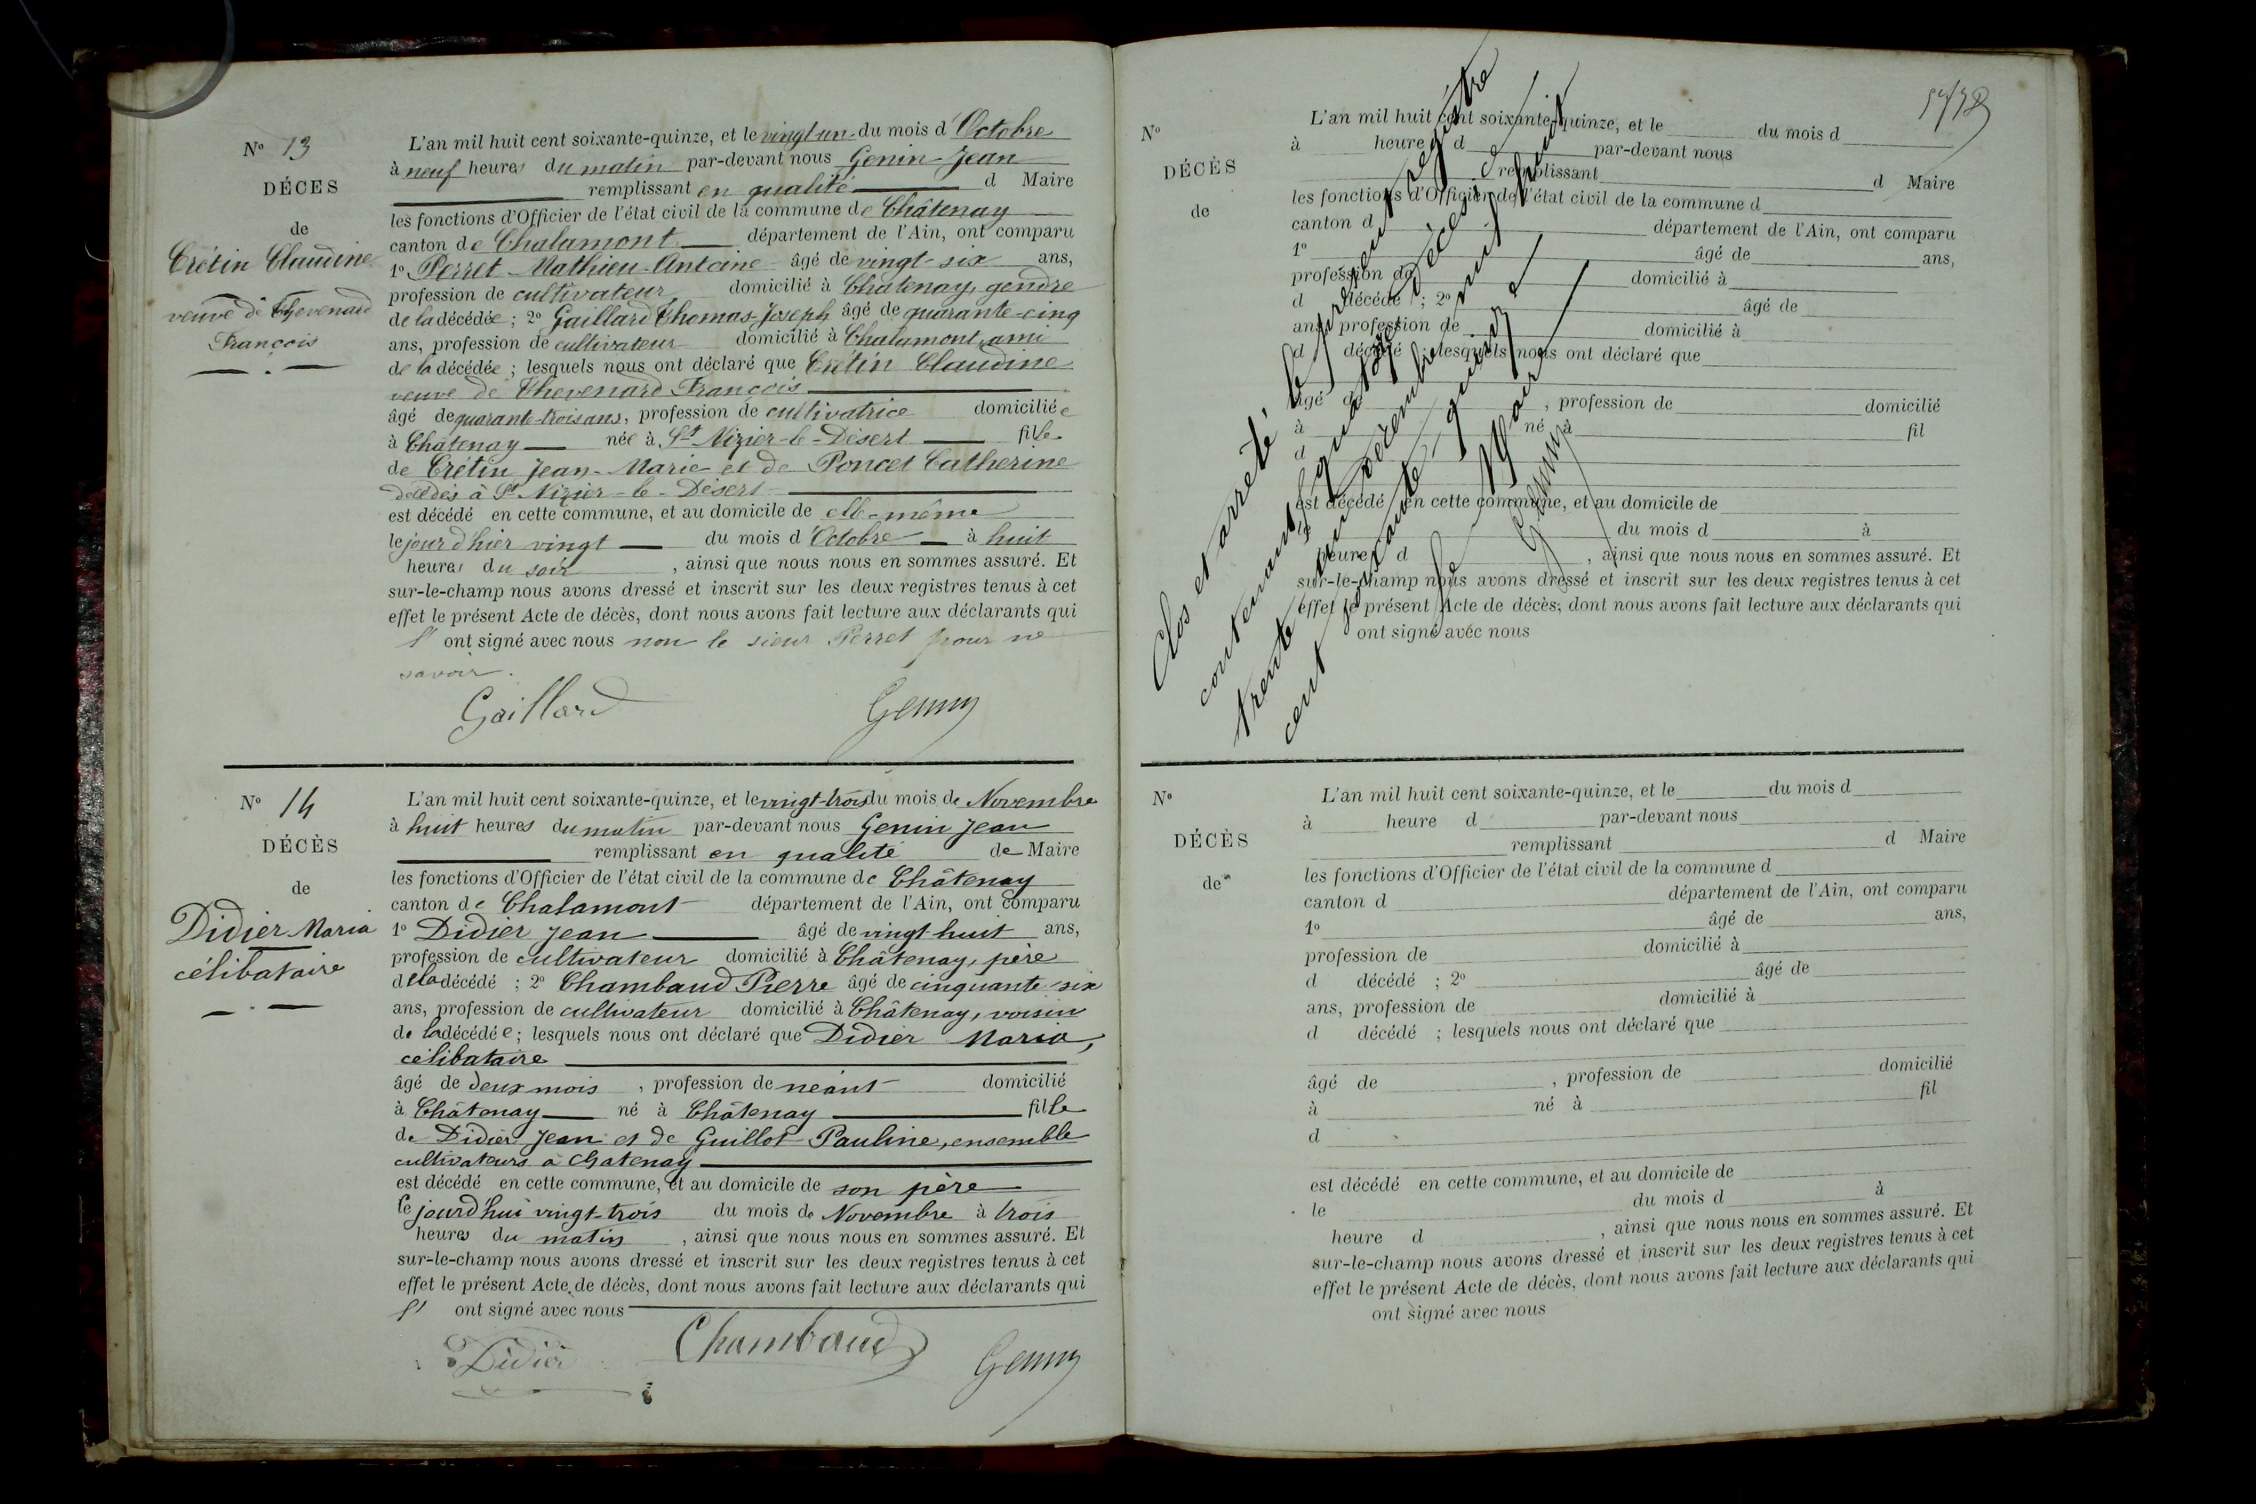 N° 13
DÉCES
de
Crétin Claudine
veuve de Thevenard
François
L'an mil huit cent soixante-quinze, et le vingt un du mois d'Octobre
à neuf heures du matin par-devant nous Genin Jean
remplissant en qualité d Maire
les fonctions d'Officier de l'état civil de la commune de Châtenay
canton de Chalamont département de l'Ain, ont comparu
1° Perret Mathieu-Antoine âgé de vingt-six ans,
profession de cultivateur domicilié à Châtenay, gendre
de la décédée ; 2° Gaillard Thomas Joseph âgé de quarante-cinq
ans, profession de cultivateur domicilié à Chalamont, ami
de la décédée ; lesquels nous ont déclaré que Crétin Claudine
veuve de Thevenard François
âgé de quarante-trois ans, profession de cultivatrice domiciliée
à Châtenay née à St Nizier-le-Désert fille
de Crétin Jean-Marie et de Poncet Catherine
décédés à St Nizier-le-Désert
est décédé en cette commune, et au domicile de elle-même
le jour d'hier vingt du mois d'Octobre à huit
heures du soir , ainsi que nous nous en sommes assuré. Et
sur-le-champ nous avons dressé et inscrit sur les deux registres tenus à cet
effet le présent Acte de décès, dont nous avons fait lecture aux déclarants qui
l' ont signé avec nous non le sieur Perret pour ne
savoir.
Gaillard Genin
N° 14
DÉCÈS
de
Didier Maria
célibataire
L'an mil huit cent soixante-quinze, et le vingt-trois du mois de Novembre
à huit heures du matin par-devant nous Genin Jean
remplissant en qualité de Maire
les fonctions d'Officier de l'état civil de la commune de Châtenay
canton de Chalamont département de l'Ain, ont comparu
1° Didier Jean âgé de vingt-huit ans,
profession de cultivateur domicilié à Châtenay, père
de la décédé ; 2° Chambaud Pierre âgé de cinquante-six
ans, profession de cultivateur domicilié à Châtenay, voisin
de la décédée ; lesquels nous ont déclaré que Didier Maria,
célibataire
âgé de deux mois , profession de néant domicilié
à Châtenay né à Châtenay fille
de Didier Jean et de Guillot Pauline, ensemble
cultivateurs à Chatenay
est décédé en cette commune, et au domicile de son père
le jourd'hui vingt-trois du mois de Novembre à trois
heures du matin , ainsi que nous nous en sommes assuré. Et
sur-le-champ nous avons dressé et inscrit sur les deux registres tenus à cet
effet le présent Acte de décès, dont nous avons fait lecture aux déclarants qui
l' ont signé avec nous
Didier Chambaud Genin
N°
DÉCÈS
de
L'an mil huit cent soixante-quinze, et le du mois d
à heure d par-devant nous
remplissant d Maire
les fonctions d'Officier de l'état civil de la commune d
canton d département de l'Ain, ont comparu
1° âgé de ans,
profession de domicilié à
d décédé ; 2° âgé de
ans, profession de domicilié à
d décédé ; lesquels nous ont déclaré que
âgé de , profession de domicilié
à né à fil
d
est décédé en cette commune, et au domicile de
le du mois d à
heure d , ainsi que nous nous en sommes assuré. Et
sur-le-champ nous avons dressé et inscrit sur les deux registres tenus à cet
effet le présent Acte de décès, dont nous avons fait lecture aux déclarants qui
ont signé avec nous
Clos et arrêté le présent registre
contenant quatorze décès
trente un décembre mil huit
cent soixante quinze
Le Maire
Genin
N°
DÉCÈS
de
L'an mil huit cent soixante-quinze, et le du mois d
à heure d par-devant nous
remplissant d Maire
les fonctions d'Officier de l'état civil de la commune d
canton d département de l'Ain, ont comparu
1° âgé de ans,
profession de domicilié à
d décédé ; 2° âgé de
ans, profession de domicilié à
d décédé ; lesquels nous ont déclaré que
âgé de , profession de domicilié
à né à fil
d
est décédé en cette commune, et au domicile de
le du mois d à
heure d , ainsi que nous nous en sommes assuré. Et
sur-le-champ nous avons dressé et inscrit sur les deux registres tenus à cet
effet le présent Acte de décès, dont nous avons fait lecture aux déclarants qui
ont signé avec nous